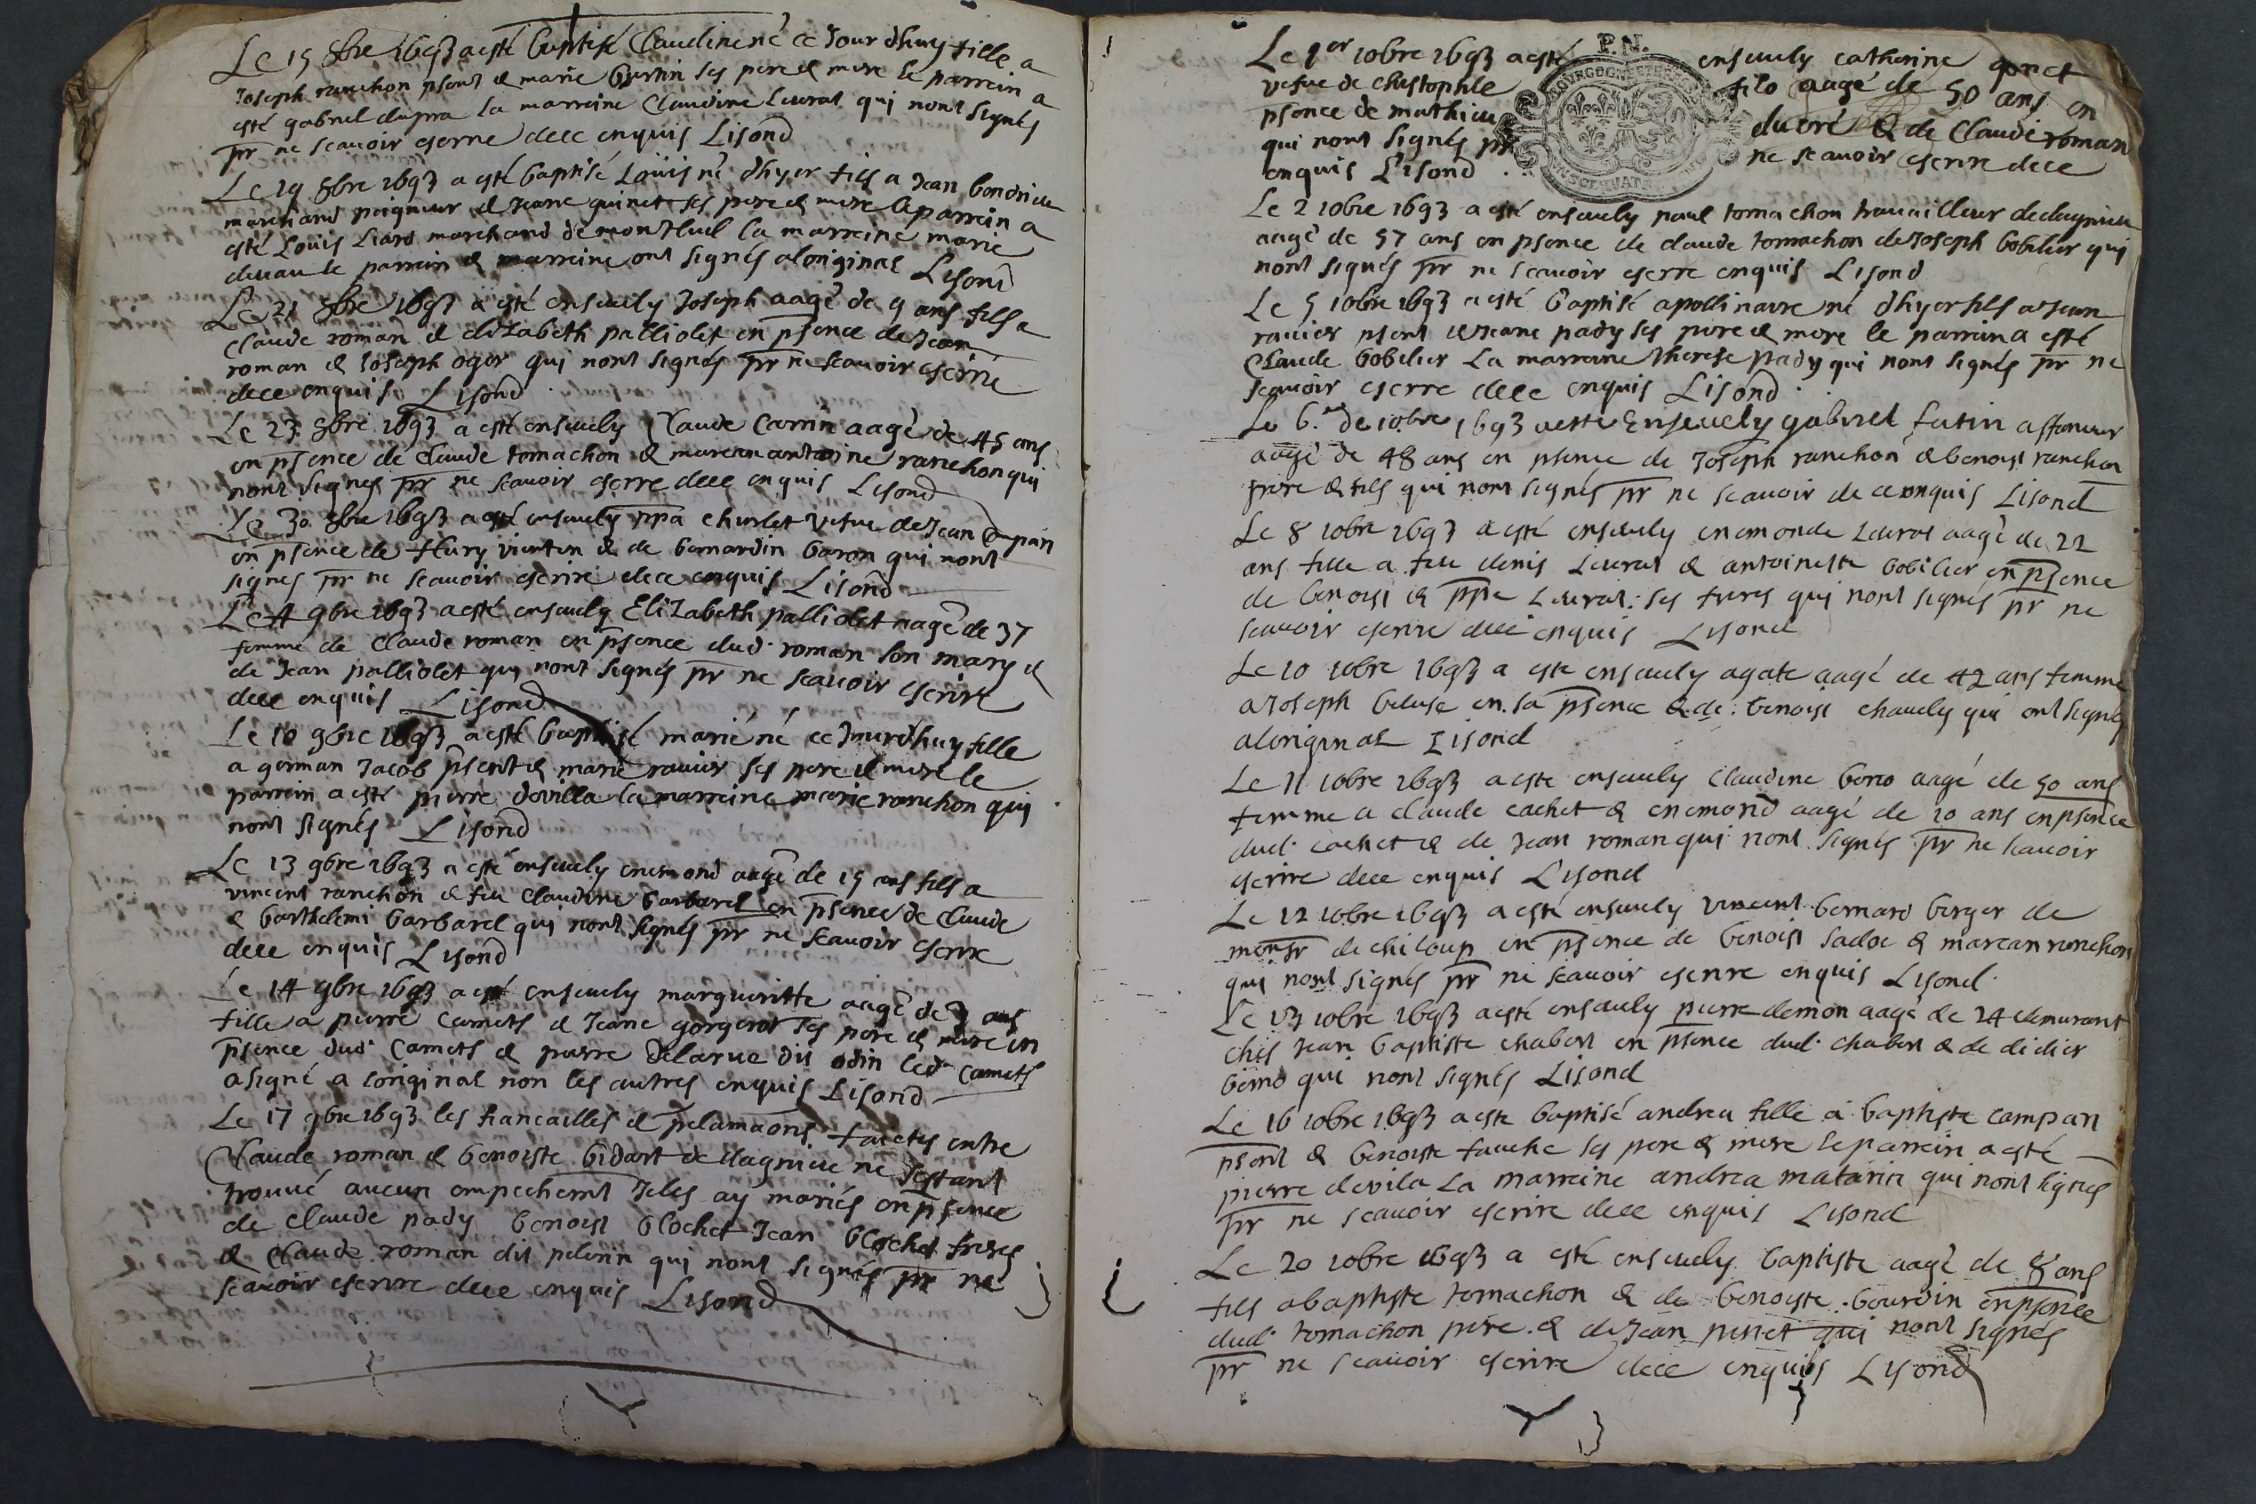 Le 15 8bre 1693 a esté baptisé Claudine né ce Jour dhuy fille a
Joseph ranchon psent & marie bertin ses pere & mere le parrein a
esté gabriel dupra la marreine Claudine Leurat qui nont signés
pr ne scavoir escrire dece enquis Lisond
Le 19 8bre 1693 a esté baptisé Loüis né dhyer fils a Jean
marchand peigneur & Jeane quinet ses pere & mere le parrein a
esté Louis Liard marchand de montluel la marreine marie
le parrein & marreine ont signés aloriginal Lisond
Le 21 8bre 1693 a esté ensevely Joseph aagé de 9 ans fils a
Claude roman & elizabeth palliolet en psence de Jean
roman & Joseph oger qui nont signés pr ne scavoir escrire
dece enquis Lisond
Le 23 8bre 1693 a esté ensevely Claude Carrin aagé de 45 ans
en psence de Claude tomachon & marcan antoine ranchon qui
nont signes pr ne scavoir escrire dece enquis Lisond
Le 30 8bre 1693 a esté ensevely ppa charlet vefve de Jean
en psence de fleury & de bernardin baron qui nont
signes pr ne scavoir escrire dece enquis Lisond
Le 4 9bre 1693 a esté ensevely Elizabeth palliolet aagé de 37
femme de Claude roman en psence dud. roman son mary &
de Jean palliolet qui nont signés pr ne scavoir escrire
dece enquis Lisond
Le 10 9bre 1693 a esté baptisé marie né ce Jourdhuy fille
a german Jacob psent & marie ravier ses pere & mere le
parrein a esté pierre devilla la marreine marie ranchon qui
nont signés Lisond
Le 13 9bre 1693 a esté ensevely enemond aagé de 15 ans fils a
vincent ranchon & feu Claudine barbarel en psence de Claude
& barthelemi barbarel qui nont signés pr ne scavoir escrire
dece enquis Lisond
Le 14 9bre 1693 a esté ensevely margueritte aagé de 3 ans
fille a pierre Camets & Jeane gorgerat ses pere & mere en
psence dud. Camets & pierre delarue dit odin led. Camets
a signé a loriginal non les autres enquis Lisond
Le 17 9bre 1693 les fiancailles & pclamaons faictes entre
Claude roman & benoiste bidart de dagnieu ne sestant
trouvé aucun empechemt Je les ay mariés en psence
de Claude pady benoist blochet Jean blochet freres
& Claude roman dit pelerin qui nont signés pr ne
scavoir escrire dece enquis Lisond
Le 1er 10bre 1693 a esté ensevely catherine
vefve de christophle filo aagé de 50 ans en
psence de mathieu ducré & de Claude roman
qui nont signés pr ne scavoir escrire dece
enquis Lisond
Le 2 10bre 1693 a esté ensevely paul tomachon travailleur de dagnieu
aagé de 57 ans en psence de claude tomachon de Joseph bobilier qui
nont signés pr ne scavoir escrire enquis Lisond
Le 5 10bre 1693 a esté baptisé apollinaire né dhyer fils a Jean
ravier psent & Jeane pady ses pere & mere le parrein a esté
Claude bobilier La marreine therese pady qui nont signés pr ne
scavoir escrire dece enquis Lisond
Le 6.me de 10bre 1693 a esté Ensevely gabriel futin affaneur
aagé de 48 ans en psence de Joseph ranchon & benoist ranchon
frere & fils qui nont signés pr ne scavoir de ce enquis Lisond
Le 8 10bre 1693 a esté ensevely enemonde Leurat aagé de 22
ans fille a feu denis Leurat & antoinette bobilier en psence
de benoist & ppe Leurat ses freres qui nont signés pr ne
scavoir escrire dece enquis Lisond
Le 10 10bre 1693 a esté ensevely agate aagé de 42 ans femme
a Joseph beluse en sa psence & de benoist chavely qui ont signés
aloriginal Lisond
Le 11 10bre 1693 a esté ensevely Claudine berro aagé de 50 ans
femme a claude cachet & enemond aagé de 20 ans en psence
dud. cachet & de Jean roman qui nont signés pr ne scavoir
escrire dece enquis Lisond
Le 12 10bre 1693 a esté ensevely vincent bernard berger de
monsr de chiloup en psence de benoist sadoc & marcan ranchon
qui nont signés pr ne scavoir escrire enquis Lisond
Le 13 10bre 1693 a esté ensevely pierre demon aagé de 24 demurant
ches Jean baptiste chabert en psence dud. chabert & de didier
qui nont signés Lisond
Le 16 10bre 1693 a esté baptisé andrea fille a baptiste campan
psent & benoiste fauche ses pere & mere le parrein a esté
pierre devila La marreine andrea matarin qui nont signés
pr ne scavoir escrire dece enquis Lisond
Le 20 10bre 1693 a esté ensevely baptiste aagé de 8 ans
fils a baptiste tomachon & de benoiste bourdin en psence
dud. tomachon pere & de Jean perret qui nont signés
pr ne scavoir escrire dece enquis Lisond